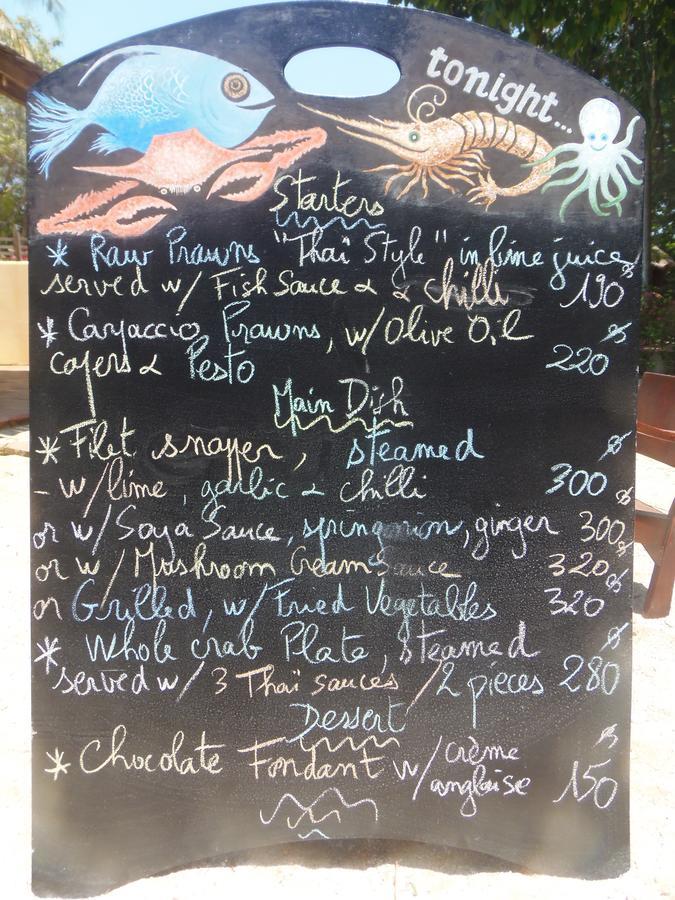 tonight...
Starters
* Raw Prawns "Thaï Style" in lime juice
served w/ Fish Sauce & & chilli 190
* Carpaccio Prawns, w/ Olive Oil
capers & Pesto 220
Main Dish
* Filet snapper, steamed
- w/lime, garlic & chilli 300
or w/ Soya Sauce, spring onion, ginger 300
or w/ Mushroom Cream Sauce 320
or Grilled, w/ Fried Vegetables 320
* Whole crab Plate, steamed
served w/ 3 Thaï sauces /2 pieces 280
Dessert
* Chocolate Fondant w/ crème
anglaise 150